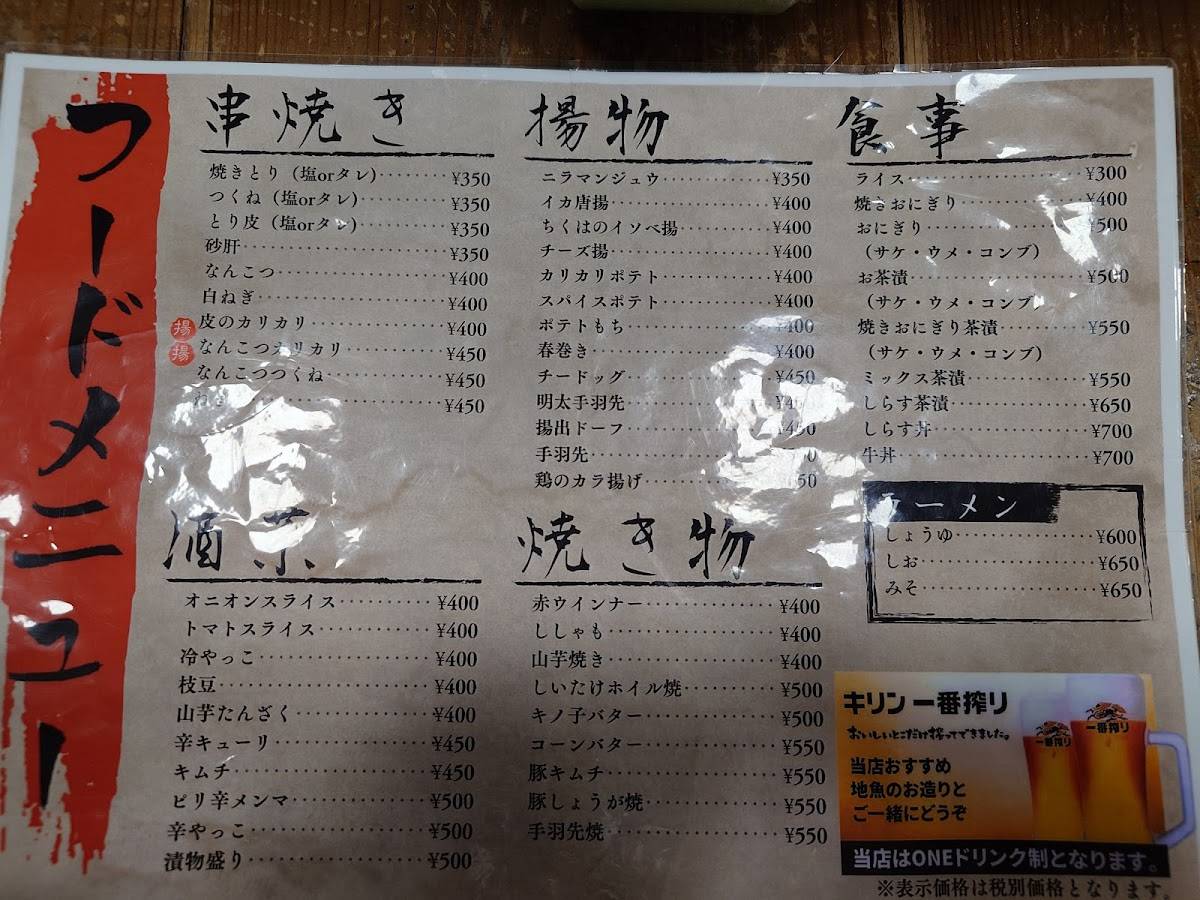 フードメニュー
串焼き
焼きとり（塩orタレ)………¥350
つくね（塩orタレ)…………¥350
とり皮（塩orタレ)…………¥350
砂肝…………¥350
なんこつ…………¥400
白ねぎ…………¥400
揚 皮のカリカリ…………¥400
揚 なんこつカリカリ…………¥450
なんこつつくね…………¥450
¥450
揚物
ニラマンジュウ…………¥350
イカ唐揚…………¥400
ちくはのイソベ揚…………¥400
チーズ揚…………¥400
カリカリポテト…………¥400
スパイスポテト…………¥400
ポテトもち…………¥400
春巻き…………¥400
チードッグ…………¥450
明太手羽先…………
揚出ドーフ…………¥450
手羽先…………
鶏のカラ揚げ…………
食事
ライス…………¥300
焼きおにぎり…………¥400
おにぎり…………¥500
（サケ・ウメ・コンブ）
お茶漬…………¥500
（サケ・ウメ・コンブ）
焼きおにぎり茶漬…………¥550
（サケ・ウメ・コンブ）
ミックス茶漬…………¥550
しらす茶漬…………¥650
しらす丼…………¥700
牛丼…………¥700
ラーメン
しょうゆ…………¥600
しお…………¥650
みそ…………¥650
酒菜
オニオンスライス…………¥400
トマトスライス…………¥400
冷やっこ…………¥400
枝豆…………¥400
山芋たんざく…………¥400
辛キューリ…………¥450
キムチ…………¥450
ピリ辛メンマ…………¥500
辛やっこ…………¥500
漬物盛り…………¥500
焼き物
赤ウインナー…………¥400
ししゃも…………¥400
山芋焼き…………¥400
しいたけホイル焼…………¥500
キノ子バター…………¥500
コーンバター…………¥550
豚キムチ…………¥550
豚しょうが焼…………¥550
手羽先焼…………¥550
キリン一番搾り
おいしいとこだけ搾ってできました。
当店おすすめ
地魚のお造りと
ご一緒にどうぞ
一番搾り
一番搾り
当店はONEドリンク制となります。
※表示価格は税別価格となります。